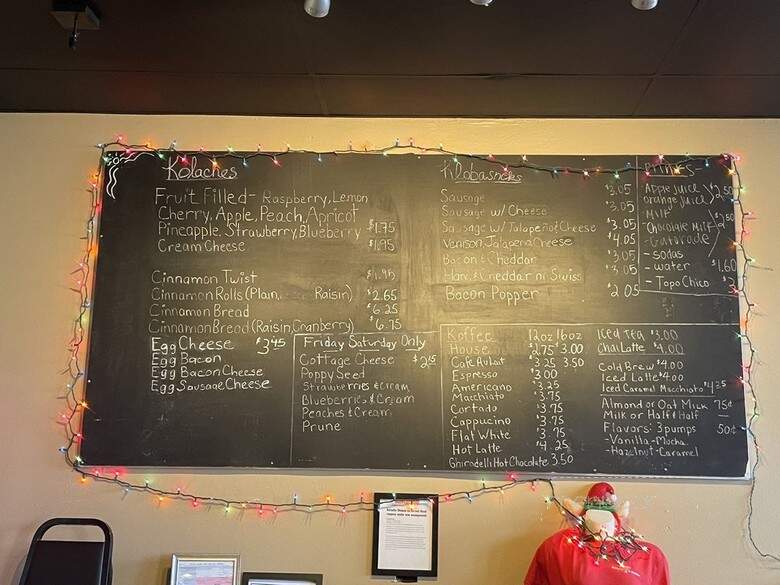 Kolaches
Fruit Filled- Raspberry, Lemon
Cherry, Apple, Peach, Apricot
Pineapple, Strawberry, Blueberry $1.75
Cream Cheese $1.95
Cinnamon Twist
Cinnamon Rolls (Plain, Raisin) $2.65
Cinnamon Bread $6.25
Cinnamon Bread (Raisin, Cranberry) $6.75
Egg Cheese $3.45
Egg Bacon
Egg Bacon Cheese
Egg Sausage Cheese
Friday Saturday Only
Cottage Cheese
Poppy Seed
Strawberries & Cream
Blueberries & Cream
Peaches & Cream
Prune
Klobasneks
Sausage $3.05
Sausage w/ Cheese $3.05
Sausage w/ Jalapeño Cheese $3.05
Venison Jalapeno Cheese $4.05
Bacon & Cheddar $3.05
Ham & Cheddar or Swiss $3.05
Bacon Popper $2.05
Koffee 12oz 16oz
House $2.75 $3.00
Cafe Au Lait $3.25 3.50
Espresso $3.00
Americano $3.25
Macchiato $3.75
Cortado $3.75
Cappucino $3.75
Flat White $3.75
Hot Latte $4.25
Ghiradelli Hot Chocolate 3.50
Drinks
Apple Juice $2.50
orange juice
Milk $2.50
Chocolate Milk
-Gatorade
-sodas
-water $1.60
-Topo Chico
Iced Tea $3.00
Chai Latte $4.00
Cold Brew $4.00
Iced Latte $4.00
Iced Caramel Macchiato $4.25
Almond or Oat Milk 75¢
Milk or Half & Half —
Flavors: 3 pumps 50¢
-Vanilla -Mocha
-Hazelnut -Caramel